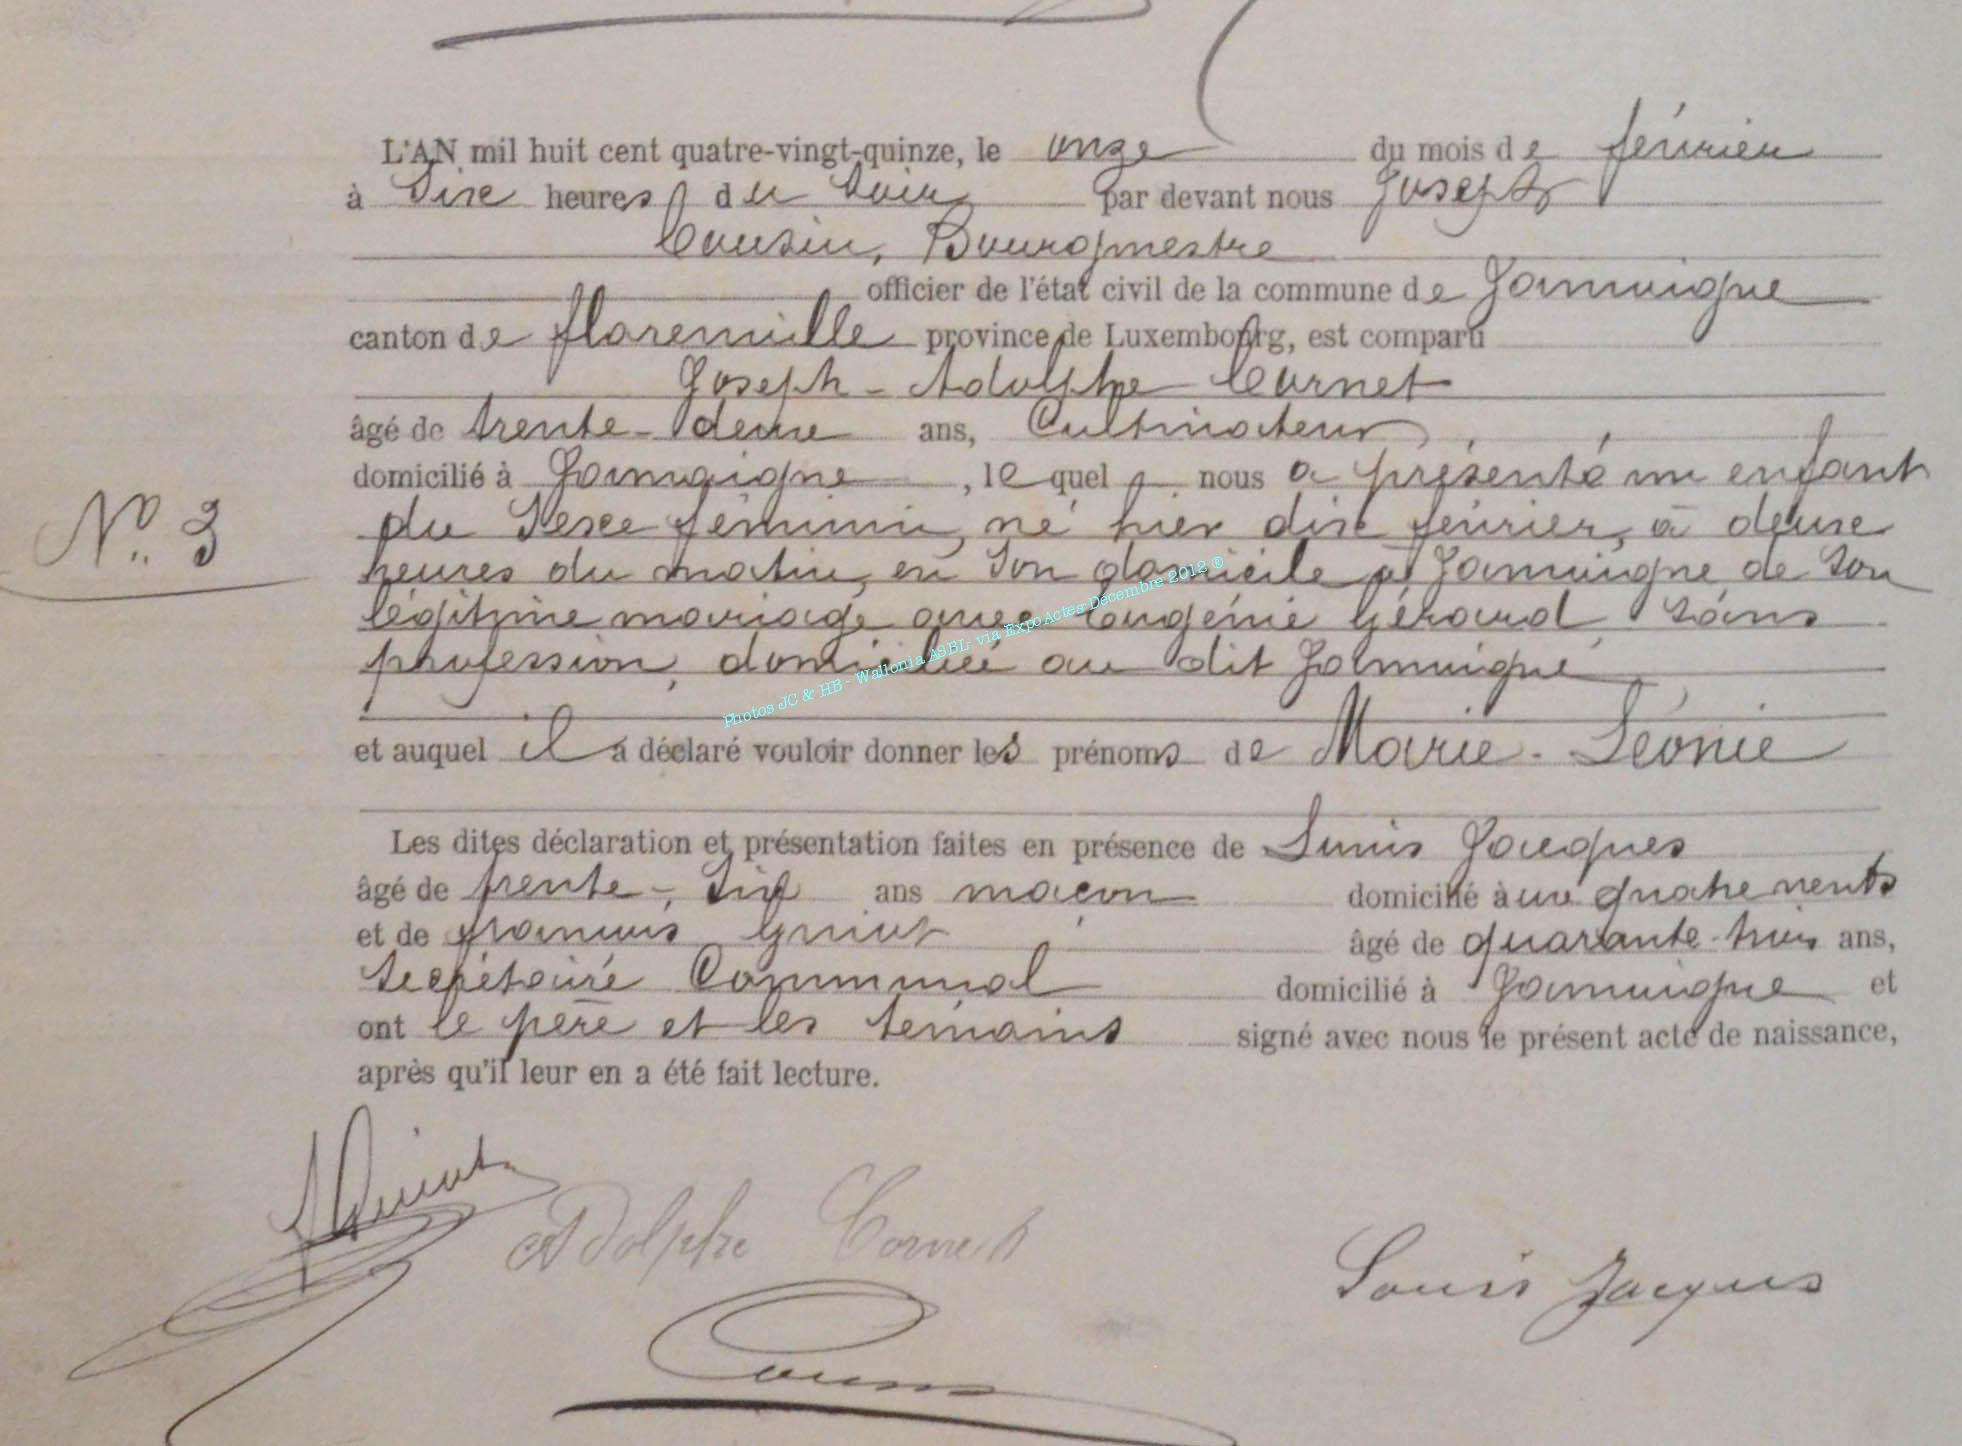 L'AN mil huit cent quatre-vingt-quinze, le onze du mois de février
à Six heures du Soir par devant nous Joseph
Cousin, Bourgmestre
officier de l'état civil de la commune de Jamoigne
canton de florenville province de Luxembourg, est comparu
Joseph-Adolphe Cornet
âgé de trente-deux ans, Cultivateur
domicilié à Jamoigne, lequel nous a présenté un enfant
du Sexe féminin, né hier dix février, à deux
heures du matin, en Son domicile à Jamoigne de Son
légitime mariage avec Eugénie Gérard, Sans
profession, domiciliée au dit Jamoigne
N° 3
et auquel il a déclaré vouloir donner les prénoms de Marie-Léonie
Les dites déclaration et présentation faites en présence de Louis Jacques
âgé de trente-Six ans maçon domicilié à quatre vents
et de françois Guiot âgé de quarante-trois ans,
Secrétaire Communal domicilié à Jamoigne et
ont le père et les témoins signé avec nous le présent acte de naissance,
après qu'il leur en a été fait lecture.
Guiot
Adolphe Cornet
Louis Jacques
Cousin
Photos JC & HB - Wallonia ASBL- via ExpoActes Décembre 2012 ®